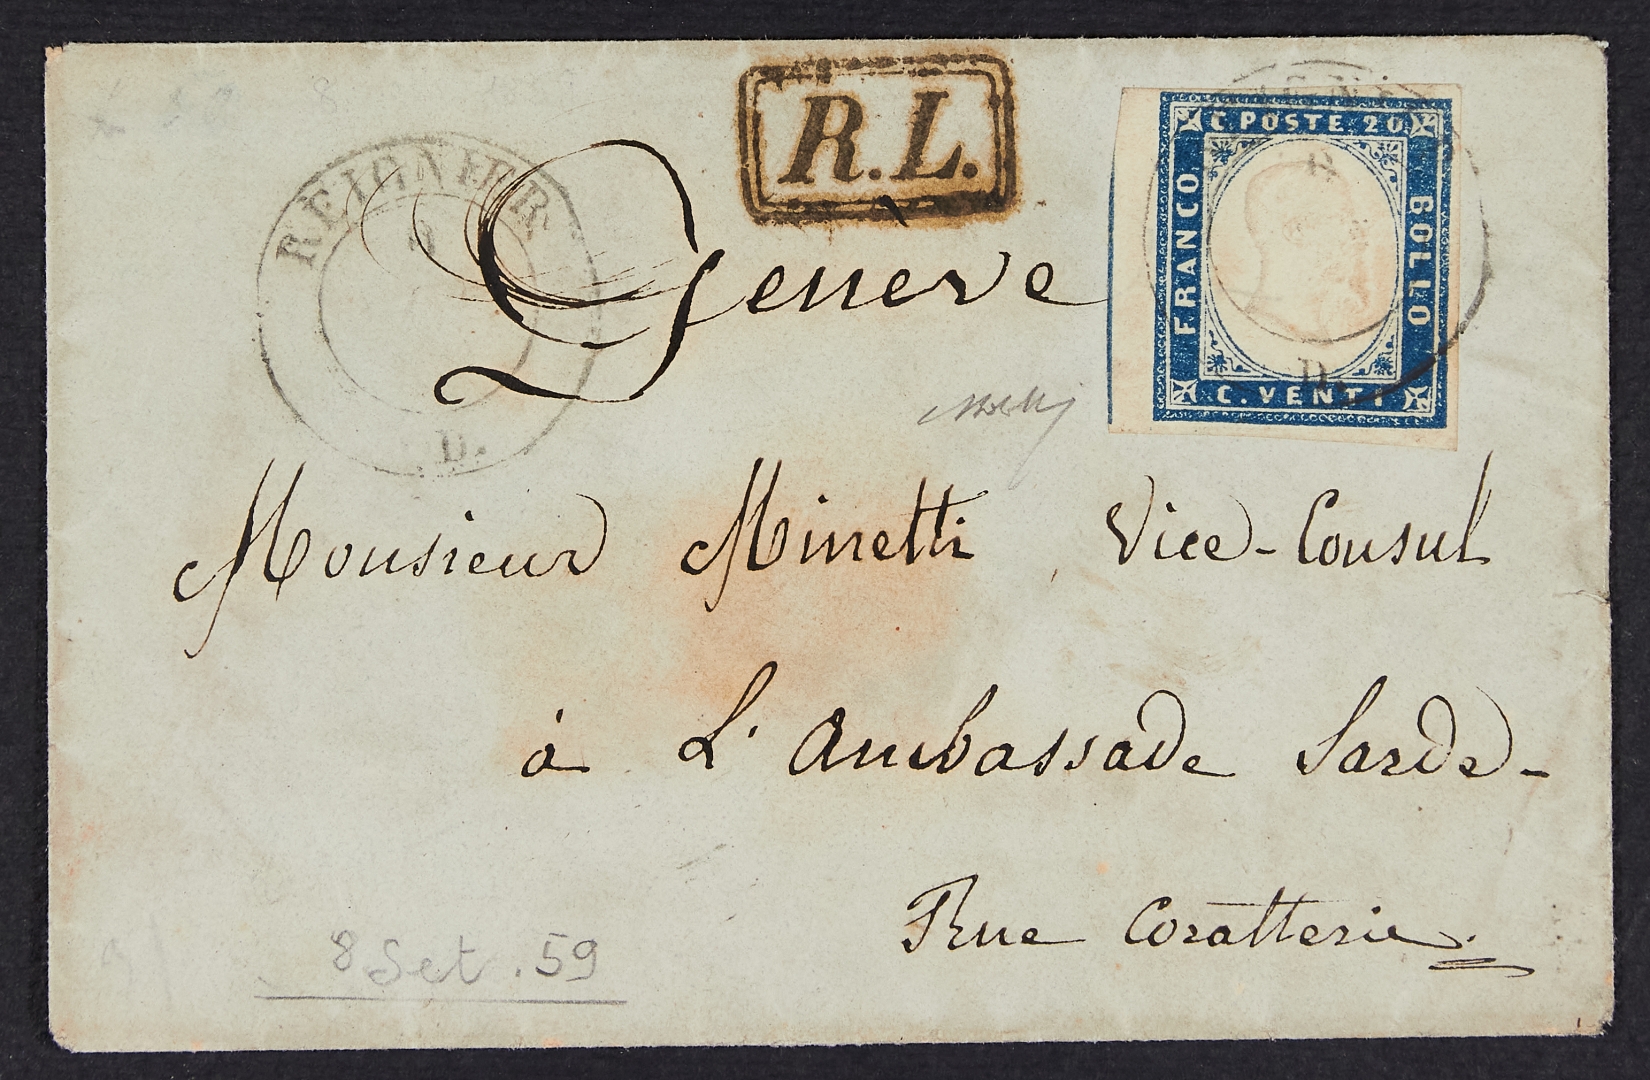 R.L.
C POSTE 20
FRANCO
BOLLO
C. VENTI
D.
REIGNIER
D.
Genève
Monsieur Minetti Vice-Consul
à L'Ambassade Sarde-
Rue Coratterie.
8 Set. 59